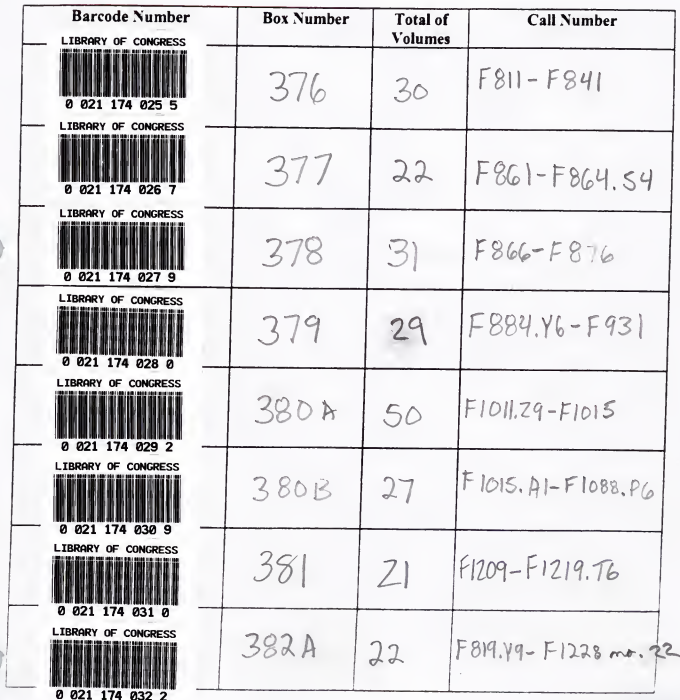 Barcode Number Box Number Total of Volumes Call Number
LIBRARY OF CONGRESS
0 021 174 025 5 376 30 F811-F841
LIBRARY OF CONGRESS
0 021 174 026 7 377 22 F861-F864.S4
LIBRARY OF CONGRESS
0 021 174 027 9 378 31 F866-F876
LIBRARY OF CONGRESS
0 021 174 028 0 379 29 F884.Y6-F931
LIBRARY OF CONGRESS
0 021 174 029 2 380A 50 F1011.Z9-F1015
LIBRARY OF CONGRESS
0 021 174 030 9 380B 27 F1015.A1-F1088.P6
LIBRARY OF CONGRESS
0 021 174 031 0 381 21 F1209-F1219.T6
LIBRARY OF CONGRESS
0 021 174 032 2 382A 22 F819.Y9-F1228 no. 22